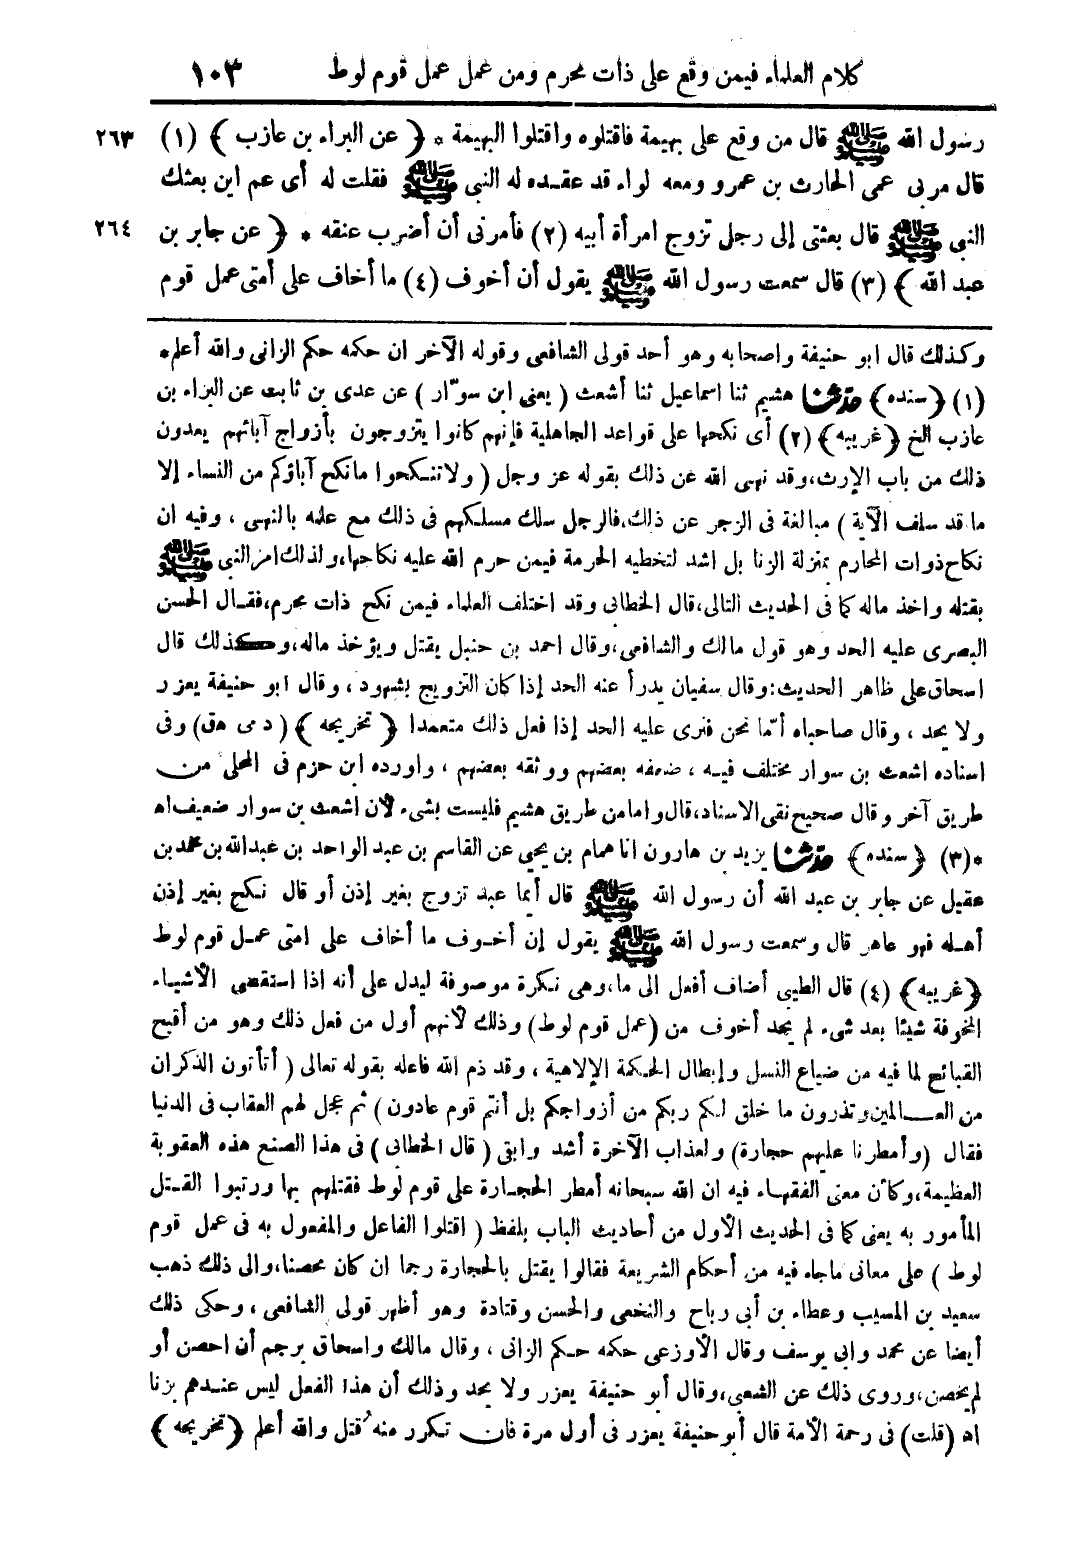 كلام العلماء فيمن وقع على ذات محرم ومن عمل عمل قوم لوط ١٠٣
رسول الله ﷺ قال من وقع على بهيمة فاقتلوه واقتلوا البهيمة * ﴿ عن البراء بن عازب ﴾ (١) ٢٦٣
قال مر بى عمى الحارث بن عمرو ومعه لواء قد عقـده له النبى ﷺ فقلت له أى عم اين بعثك
النبى ﷺ قال بعثنى إلى رجل تزوج امرأة أبيه (٢) فأمرنى أن أضرب عنقه * ﴿ عن جابر بن ٢٦٤
عبد الله ﴾ (٣) قال سمعت رسول الله ﷺ يقول أن أخوف (٤) ما أخاف على أمتى عمل قوم
وكـذلك قال ابو حنيفة واصحابه وهو أحد قولى الشافعى وقوله الآخر ان حكمه حكم الزانى والله أعلم*
(١) ﴿سنده﴾ حدثنا هشيم ثنا اسماعيل ثنا أشعث ( يعنى ابن سوّار ) عن عدى بن ثابت عن البراء بن
عازب الخ ﴿غريبه﴾ (٢) أى نكحها على قواعد الجاهلية فإنهم كانوا يتزوجون بأزواج آبائهم يعدون
ذلك من باب الإرث، وقد نهى الله عن ذلك بقوله عز وجل ( ولا تنـكحوا ما نكح آباؤكم من النساء إلا
ما قد سلف الآية ) مبالغة فى الزجر عن ذلك، فالرجل سلك مسلـكهم فى ذلك مع علمه بالنهى ، وفيه ان
نكاح ذوات المحارم بمنزلة الزنا بل اشد لتخطيه الحرمة فيمن حرم الله عليه نكاحها، ولذلك امر النبى ﷺ
بقتله واخذ ماله كما فى الحديث التالى، قال الخطابى وقد اختلف العلماء فيمن نكح ذات محرم، فقـال الحسن
البصرى عليه الحد وهو قول مالك والشافعى، وقال احمد بن حنبل يقتل ويؤخذ ماله، وكـذلك قال
اسحاق على ظاهر الحديث: وقال سفيان يدرأ عنه الحد إذا كان التزويج بشهود ، وقال ابو حنيفة يعزر
ولا يحد ، وقال صاحباه أمّا نحن فنرى عليه الحد إذا فعل ذلك متعمدا ﴿ تخريجه ﴾ ( د مى هق ) وفى
اسناده اشعث بن سوار مختلف فيـه ، ضعفه بعضهم ووثقه بعضهم ، واورده ابن حزم فى المحلى من
طريق آخر وقال صحيح نقى الاسناد، قال واما من طريق هشيم فليست بشىء لأن اشعث بن سوار ضعيف اه
*(٣) ﴿ سنده ﴾ حدثنا يزيد بن هارون انا همام بن يحيى عن القاسم بن عبد الواحد بن عبد الله بن محمد بن
عقيل عن جابر بن عبد الله أن رسول الله ﷺ قال أيما عبد تزوج بغير إذن أو قال نـكح بغير إذن
أهـله فهو عاهر قال وسمعت رسول الله ﷺ يقول إن أخـوف ما أخاف على امتى عمـل قوم لوط
﴿غريبه﴾ (٤) قال الطيبى أضاف أفعل الى ما، وهى نـكرة موصوفة ليدل على أنه اذا استقصى الأشيـاء
المخوفة شيئا بعد شىء لم يجد أخوف من (عمل قوم لوط) وذلك لأنهم أول من فعل ذلك وهو من أقبح
القبائح لما فيه من ضياع النسل وإبطال الحـكمة الإلاهية ، وقد ذم الله فاعله بقوله تعالى ( أتأتون الذكران
من العـالمين وتذرون ما خلق لـكم ربكم من أزواجكم بل أنتم قوم عادون ) ثم عجل لهم العقاب فى الدنيا
فقال (وأمطرنا عليهم حجارة) ولعذاب الآخرة أشد وابقى ( قال الخطابى ) فى هذا الصنع هذه العقوبة
العظيمة، وكأن معنى الفقهـاء فيه ان الله سبحانه أمطر الحجـارة على قوم لوط فقتلهم بها ورتبوا القتـل
المأمور به يعنى كما فى الحديث الأول من أحاديث الباب بلفظ ( اقتلوا الفاعل والمفعول به فى عمل قوم
لوط ) على معانى ما جاء فيه من أحكام الشريعة فقالوا يقتل بالحجارة رجما ان كان محصنا، والى ذلك ذهب
سعيد بن المسيب وعطاء بن أبى رباح والنخعى والحسن وقتادة وهو أظهر قولى الشافعى ، وحكى ذلك
أيضا عن محمد وابى يوسف وقال الأوزعى حكمه حـكم الزانى ، وقال مالك واسحاق يرجم أن احصن أو
لم يحصن، وروى ذلك عن الشعبى، وقال أبو حنيفة يعزر ولا يحد وذلك أن هذا الفعل ليس عنـدهم بزنا
اه (قلت) فى رحمة الأمة قال أبو حنيفة يعزر فى أول مرة فان تكرر منه قتل والله أعلم ﴿تخريجه﴾